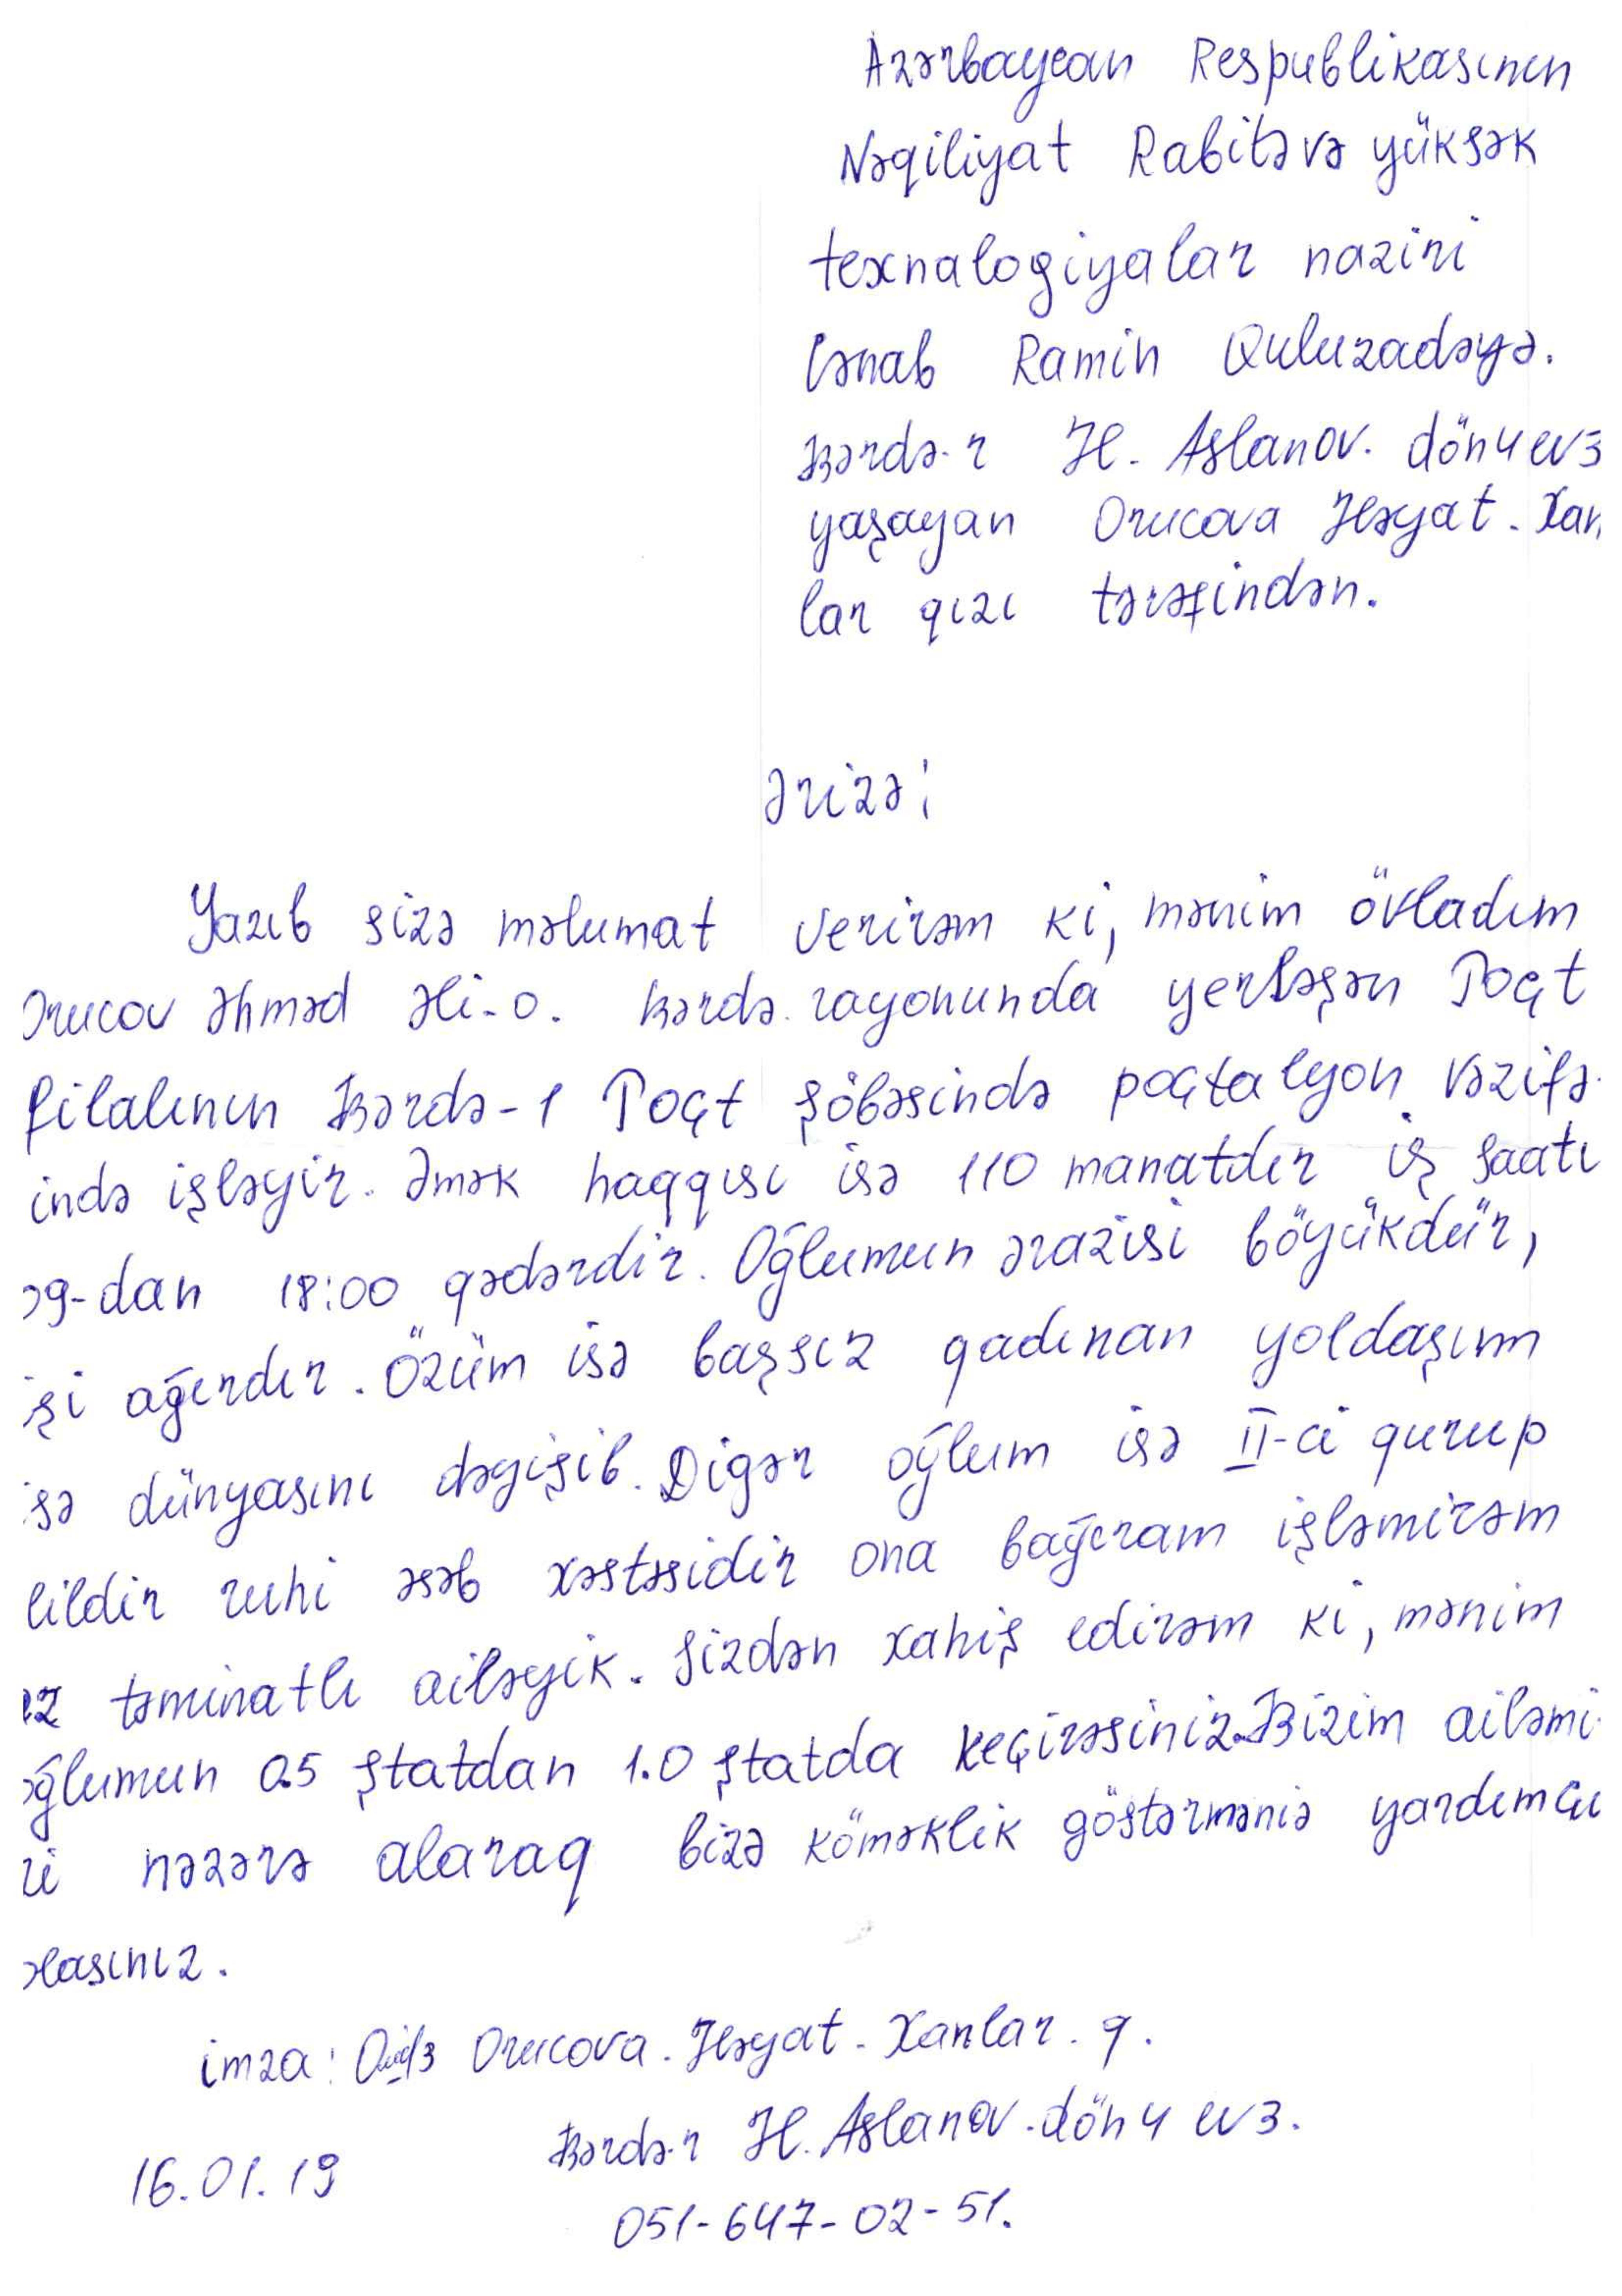 Azərbaycan Respublikasının
Nəqiliyat Rabitə və yüksək
texnalogiyalar naziri
Cənab Ramin Quluzadəyə.
Bərdə-r H. Aslanov. dön 4 ev 3
yaşayan Orucova Həyat. Xan
lar qızı tərəfindən.
Ərizə;
Yazıb sizə məlumat verirəm ki, mənim övladım
Orucov Əhməd Əli-o. Bərdə rayonunda yerləşən Poçt
filalının Bərdə-1 Poçt şöbəsində poçtalyon vəzifə
ində işləyir. Əmək haqqısı isə 110 manatdır iş saatı
09-dan 18:00 qədərdir. Oğlumun ərazisi böyükdür,
işi ağırdır. Özüm isə başsız qadınan yoldaşım
isə dünyasını dəyişib. Digər oğlum isə II-ci qurup
lildir ruhi əsəb xəstəsidir ona baxıram işləmirəm
az təminatlı ailəyik. Sizdən xahiş edirəm ki, mənim
oğlumun 0.5 ştatdan 1.0 ştatda keçirəsiniz. Bizim ailəmi
zi nəzərə alaraq bizə köməklik göstərməniə yardımçı
olasınız.
imza: Orucova. Həyat. Xanlar. q.
Bərdə-r H. Aslanov. dön 4 ev 3.
16.01.19
051-647-02-51.